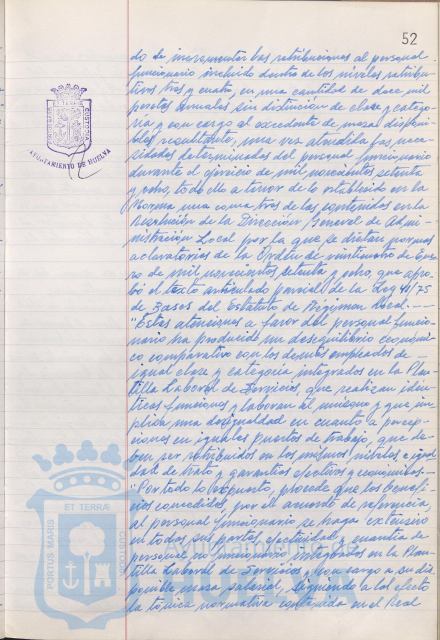 52
do de incrementar las retribuciones al personal
funcionario incluido dentro de los niveles retribu-
tivos tres y cuatro, en una cantidad de doce mil
pesetas anuales sin distinción de clase y catego-
ría y con cargo al excedente de masa disponi-
bles resultante, una vez atendidas las nece-
sidades determinadas del personal funcionario
durante el ejercicio de mil novecientos setenta
y ocho, todo ello a tenor de lo establecido en la
Norma una coma tres de las contenidas en la
Resolución de la Dirección General de Admi-
nistración Local por la que se dictan normas
aclaratorias de la Orden de veinticuatro de Ene-
ro de mil novecientos setenta y ocho, que apro-
bó el texto articulado parcial de la Ley 41/75
de Bases del Estatuto de Régimen Local.--
"Estas atenciones a favor del personal funcio-
nario ha producido un desequilibrio económi-
co comparativo con los demás empleados de -
igual clase y categoría integrados en la Plan-
tilla Laboral de Servicios, que realizan idén-
ticas funciones y laboran al unísono y que im-
plica una desigualdad en cuanto a percep-
ciones en iguales puestos de trabajo, que de-
ben ser retribuidos en los mismos niveles e igual-
dad de trato y garantías efectivas y económicas.-
"Por todo lo expuesto, procede que los benefi-
cios concedidos, por el acuerdo de referencia,
al personal funcionario se haga extensivo
en todas sus partes, efectividad y cuantía de
personal no funcionario integrados en la Plan-
tilla Laboral de Servicios, y con cargo a su dis-
ponible masa salarial, siguiendo a tal efecto
la tónica normativa contenida en el Real
ET TERRÆ
PORTUS MARIS
CUSTODIA
AYUNTAMIENTO DE HUELVA
PORTUS MARIS
ET TERRÆ
CUSTODIA
HUELVA